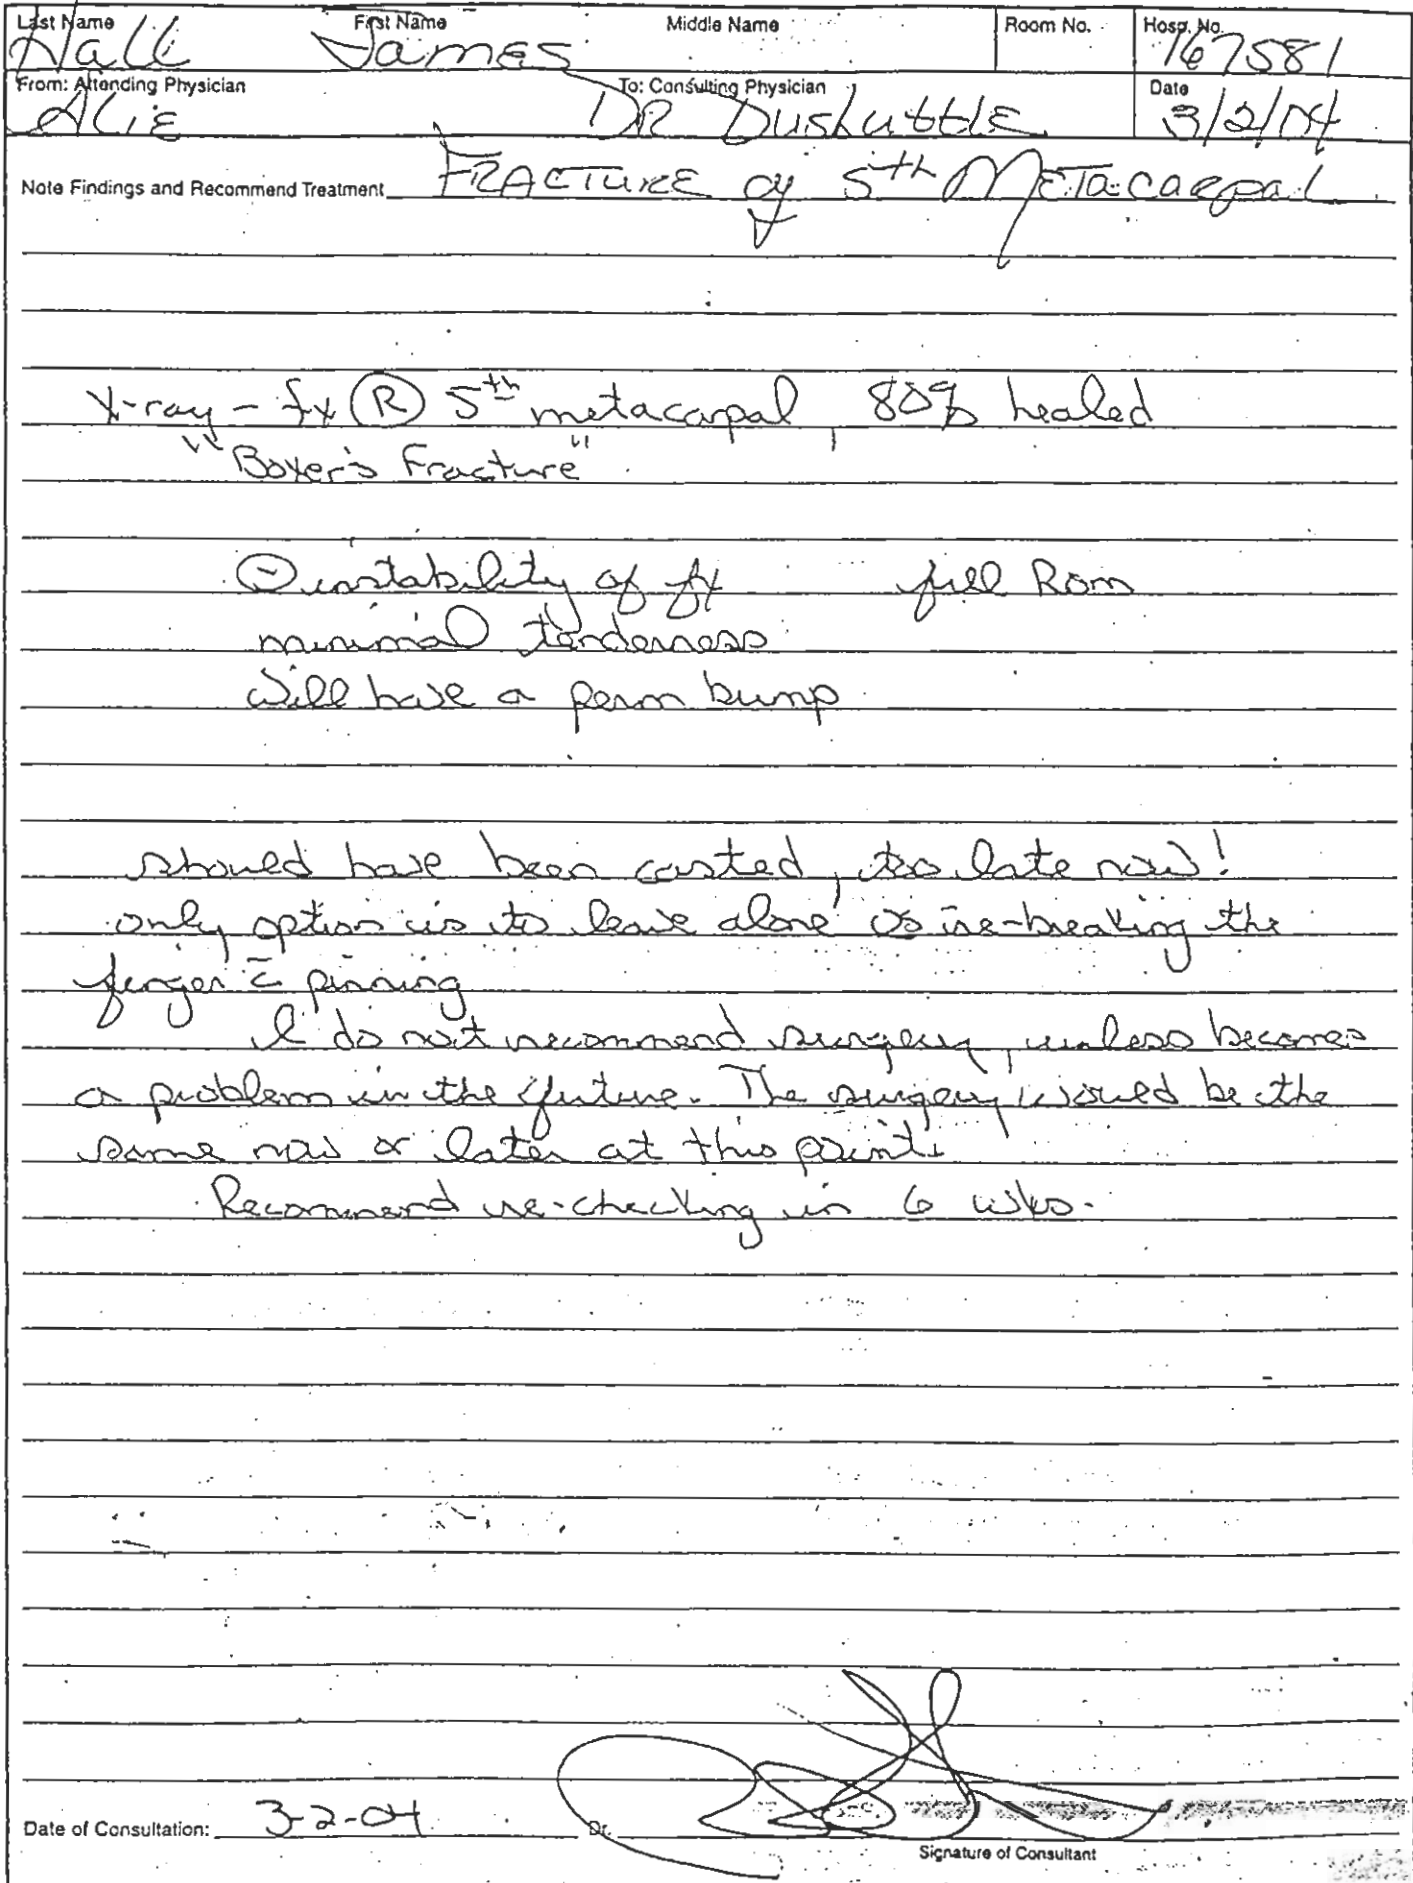 Last Name First Name Middle Name Room No. Hosp. No.
Hall James 167581
From: Attending Physician To: Consulting Physician Date
Alie DR Dushuttle 3/2/04
Note Findings and Recommend Treatment FRACTURE of 5th Metacarpal
X-ray - fx (R) 5th metacarpal, 80% healed
"Boxer's Fracture"
(-) instability of fx full Rom
minimal tenderness
will have a perm bump
should have been casted, too late now!
only option is to leave alone vs re-breaking the
finger c̄ pinning
I do not recommend surgery, unless becomes
a problem in the future. The surgery would be the
same now or later at this point.
Recommend re-checking in 6 wks.
Date of Consultation: 3-2-04 Dr.
Signature of Consultant